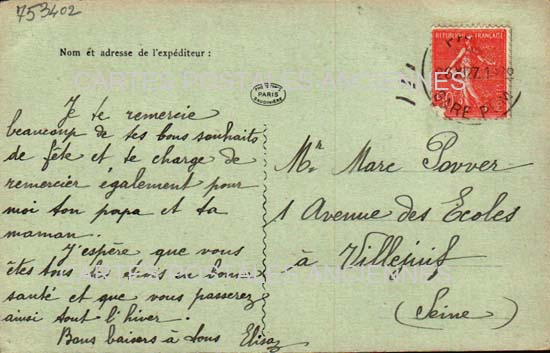 753402
Nom et adresse de l'expéditeur :
Je te remercie
beaucoup de tes bons souhaits
de fête et te charge de
remercier également pour
moi ton papa et ta
maman.
J'espère que vous
êtes tous en bonne
santé et que vous passerez
ainsi tout l'hiver.
Bons baisers à tous
PARIS
REPUBLIQUE FRANÇAISE
GARE
Mr Marc
1 Avenue des Ecoles
à Villejuif
(Seine)
CARTES POSTALES ANCIENNES
CARTES POSTALES ANCIENNES